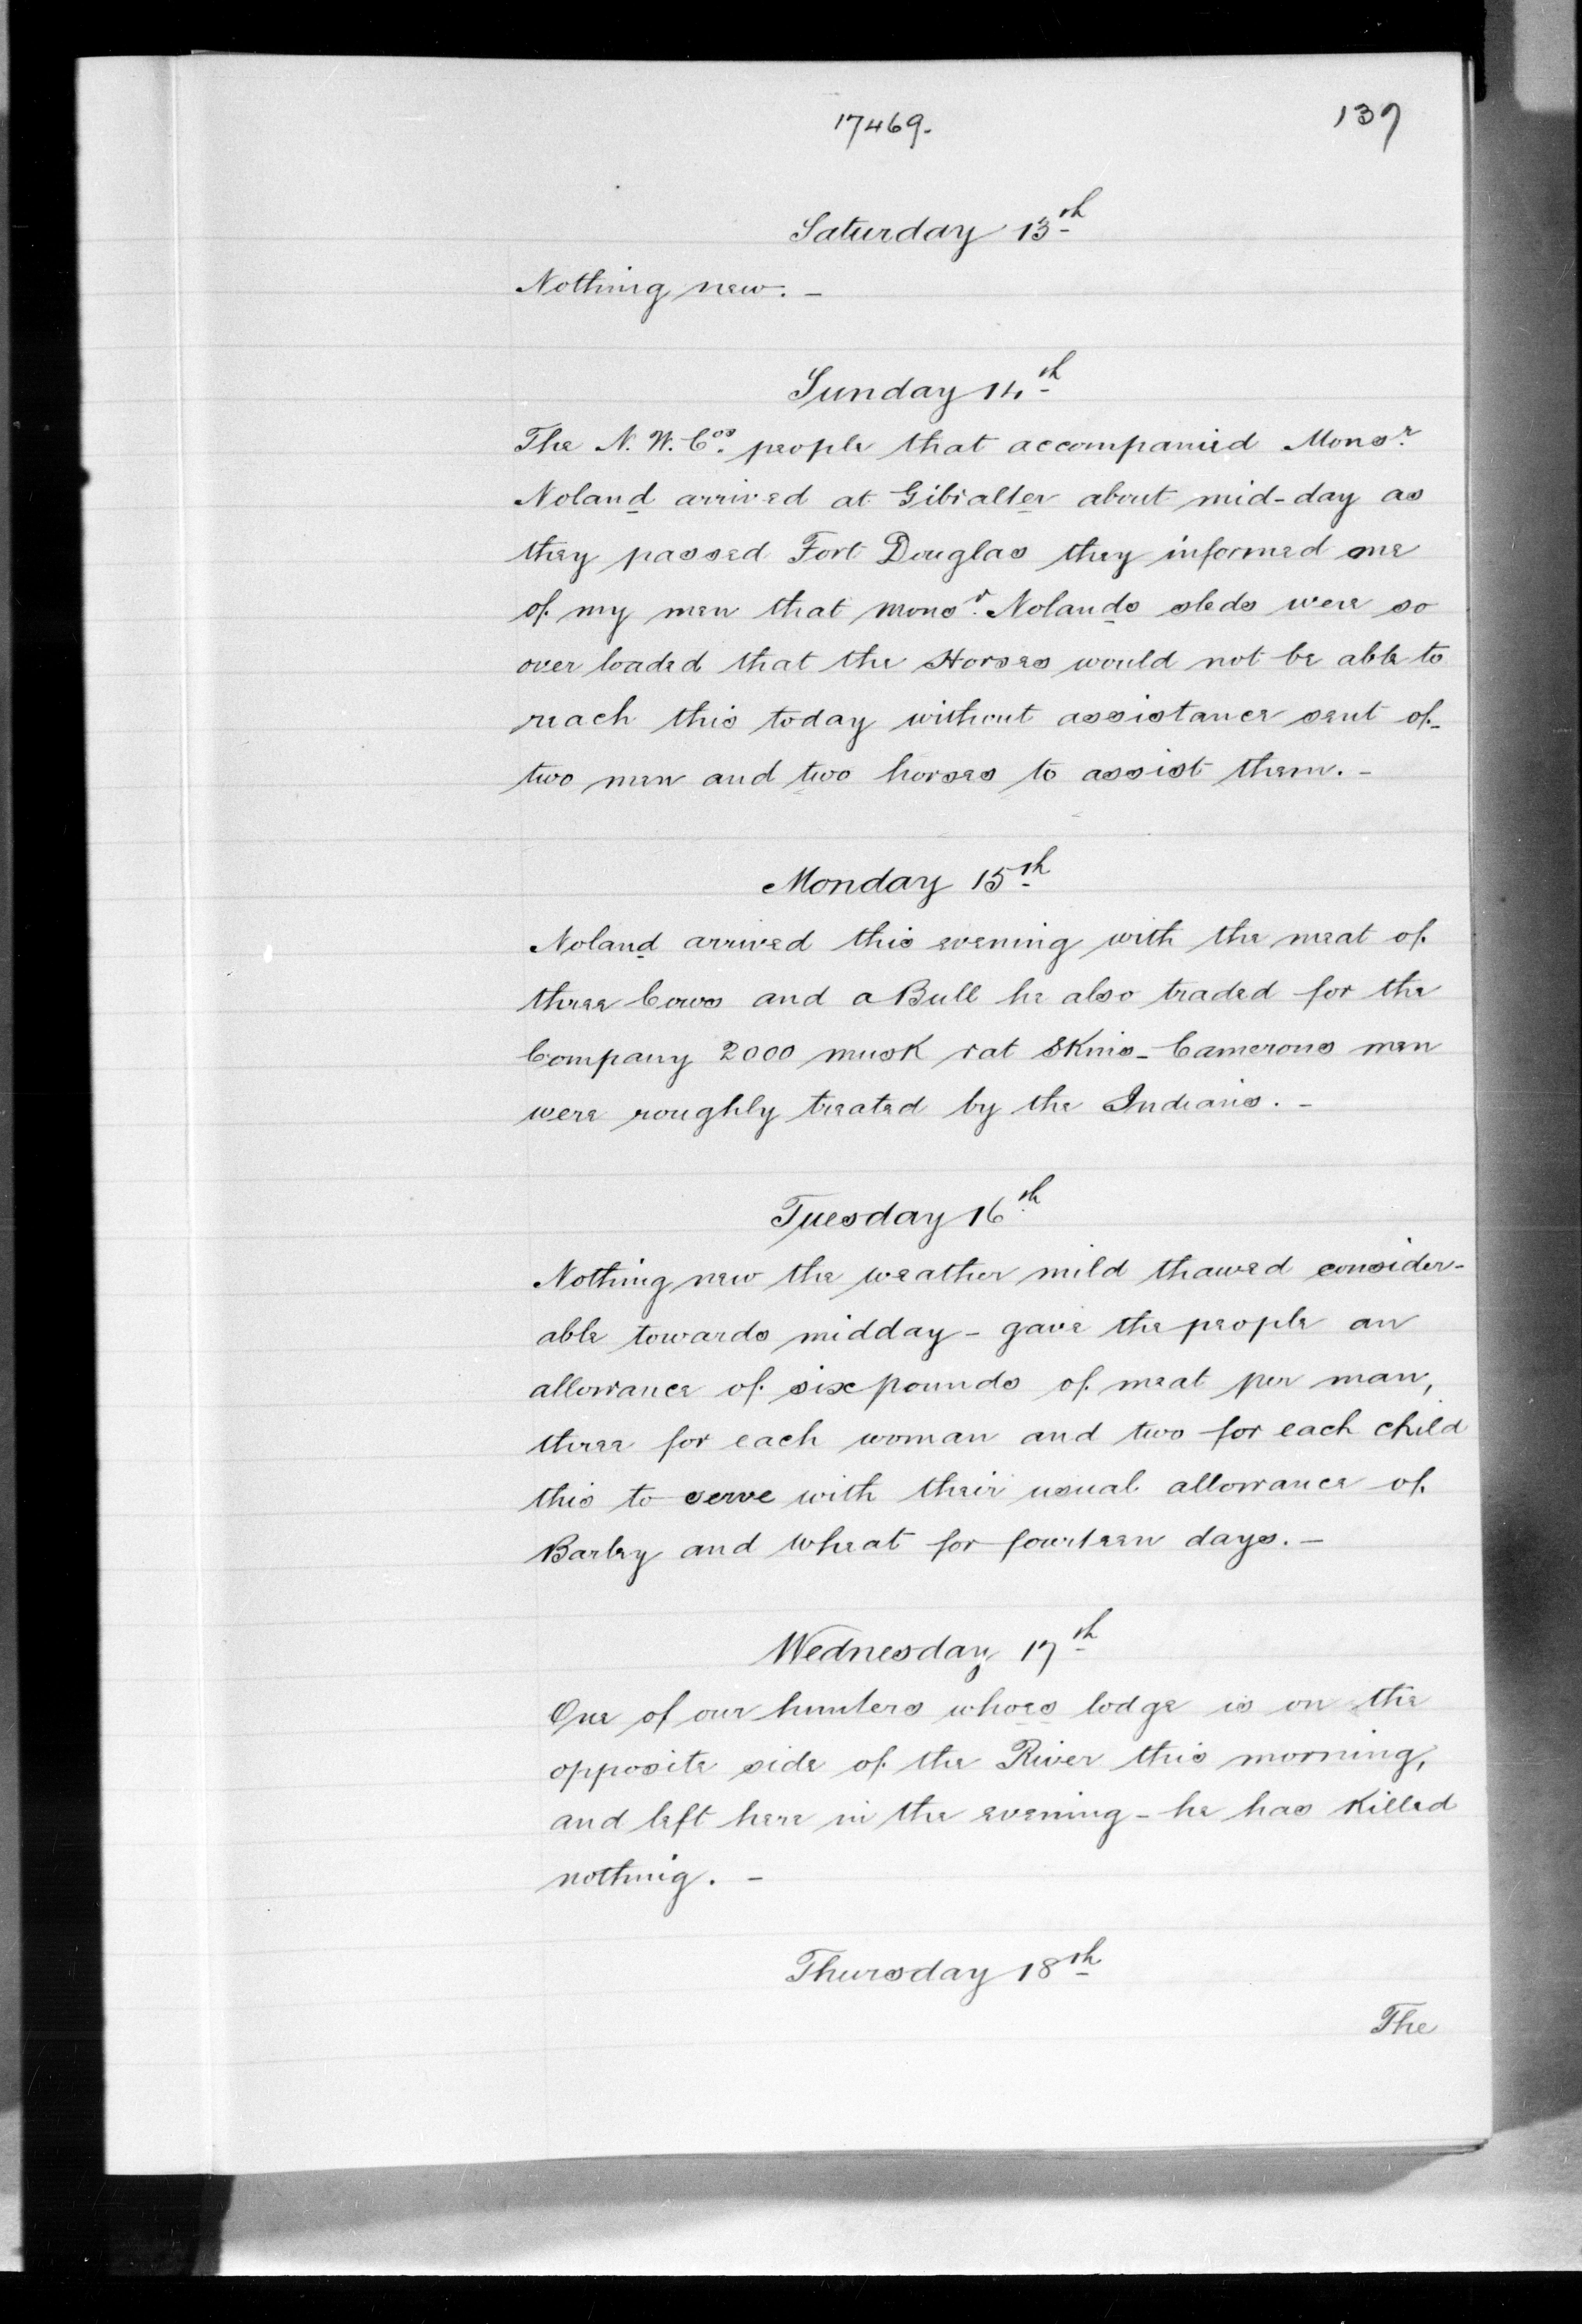 17469.
137
Saturday 13th
Nothing new. -
Sunday 14th
The N. W. Cos. people that accompanied Monsr.
Noland arrived at Gibralter about mid-day as
they passed Fort Douglas they informed me
of my men that Monsr. Nolands sleds were so
over loaded that the Horses would not be able to
reach this today without assistance sent of-
two men and two horses to assist them. -
Monday 15th
Noland arrived this evening with the meat of
three Cows and a Bull he also traded for the
Company 2000 musk rat Skins - Camerons men
were roughly treated by the Indians. -
Tuesday 16th
Nothing new the weather mild thawed consider-
able towards midday - gave the people an
allowance of six pounds of meat per man,
three for each woman and two for each child
this to serve with their usual allowance of
Barley and Wheat for fourteen days. -
Wednesday 17th
One of our hunters whoes lodge is on the
opposite side of the River this morning,
and left here in the evening - he has Killed
nothing. -
Thursday 18th
The